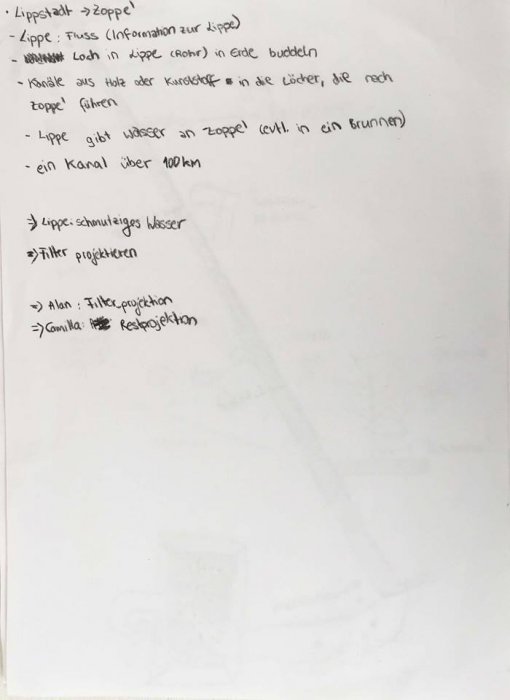 • Lippstadt → Zoppe'
- Lippe: Fluss (Information zur Lippe)
- Loch in Lippe (Rohr) in Erde buddeln
- Kanäle aus Holz oder Kunststoff in die Löcher, die nach
Zoppe' führen
- Lippe gibt Wasser an Zoppe' (evtl. in ein Brunnen)
- ein Kanal über 100km
=> Lippe: schmutziges Wasser
=> Filter projektieren
=> Alan: Filterprojektion
=> Camilla: Restprojektion